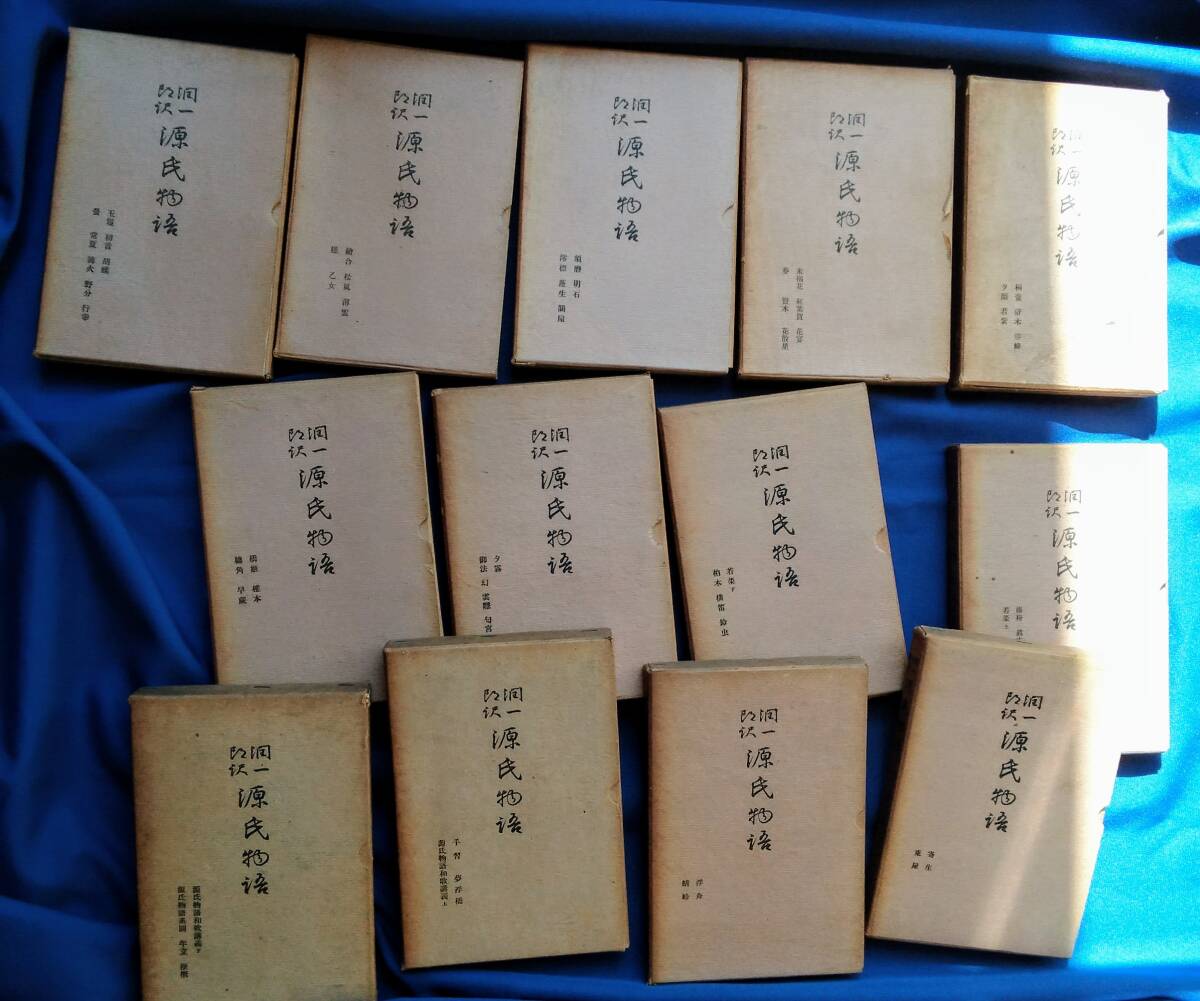 潤一
郎訳
源氏物語
桐壺 帚木 空蟬
夕顏 若紫
潤一
郎訳
源氏物語
末摘花 紅葉賀 花宴
葵 賢木 花散里
潤一
郎訳
源氏物語
須磨 明石
澪標 蓬生 關屋
潤一
郎訳
源氏物語
繪合 松風 薄雲
槿 乙女
潤一
郎訳
源氏物語
玉鬘 初音 胡蝶
螢 常夏 篝火 野分 行幸
潤一
郎訳
源氏物語
藤袴
若菜上
潤一
郎訳
源氏物語
若菜下
柏木 橫笛 鈴虫
潤一
郎訳
源氏物語
夕霧
御法 幻 雲隱 匂宮
潤一
郎訳
源氏物語
橋姬 椎本
總角 早蕨
潤一
郎訳
源氏物語
寄生
東屋
潤一
郎訳
源氏物語
浮舟
蜻蛉
潤一
郎訳
源氏物語
手習 夢浮橋
源氏物語和歌講義上
潤一
郎訳
源氏物語
源氏物語和歌講義下
源氏物語系圖 年立 梗槪